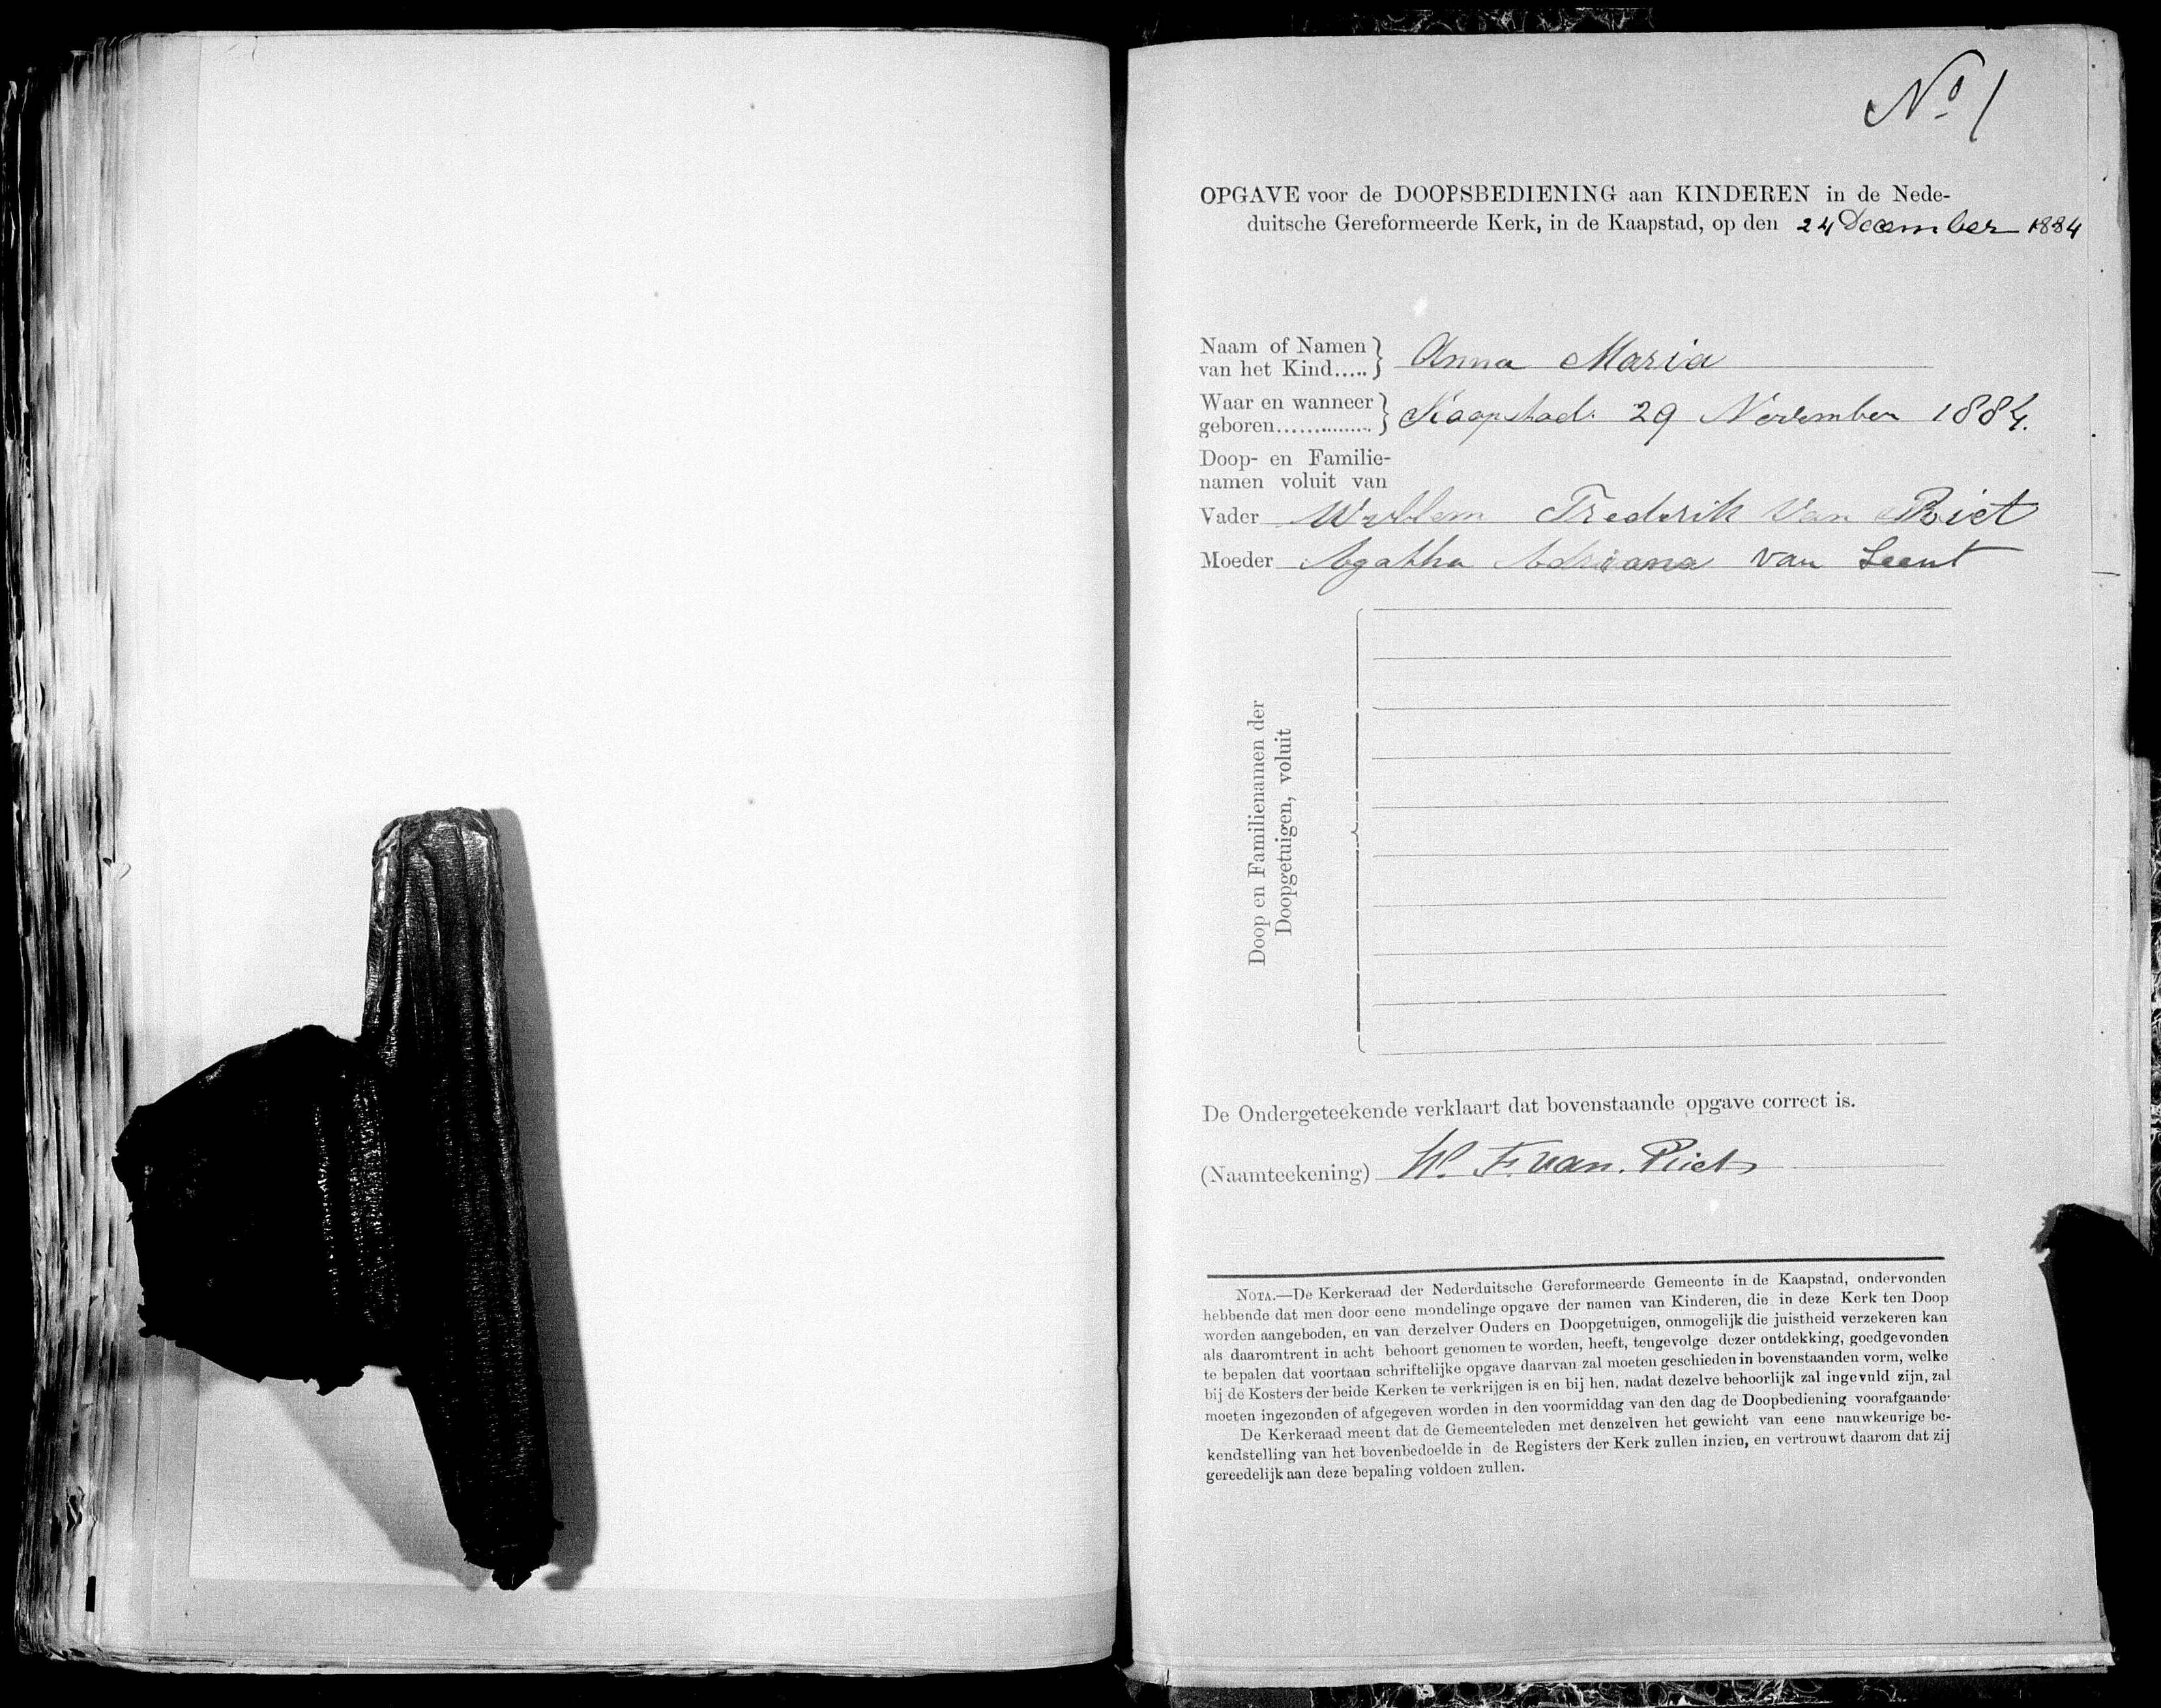 No 1
OPGAVE voor de DOOPSBEDIENING aan KINDEREN in de Nede-
duitsche Gereformeerde Kerk, in de Kaapstad, op den 24 December 1884
Naam of Namen
van het Kind..... Anna Maria
Waar en wanneer
geboren............... Kaapstad. 29 November 1884.
Doop- en Familie-
namen voluit van
Vader Willem Frederik Van Riet
Moeder Agatha Adriana van Leent
Doop en Familienamen der
Doopgetuigen, voluit
De Ondergeteekende verklaart dat bovenstaande opgave correct is.
(Naamteekening) W. F. van. Riet
NOTA.—De Kerkeraad der Nederduitsche Gereformeerde Gemeente in de Kaapstad, ondervonden
hebbende dat men door eene mondelinge opgave der namen van Kinderen, die in deze Kerk ten Doop
worden aangeboden, en van derzelver Ouders en Doopgetuigen, onmogelijk die juistheid verzekeren kan
als daaromtrent in acht behoort genomen te worden, heeft, tengevolge dezer ontdekking, goedgevonden
te bepalen dat voortaan schriftelijke opgave daarvan zal moeten geschieden in bovenstaanden vorm, welke
bij de Kosters der beide Kerken te verkrijgen is en bij hen, nadat dezelve behoorlijk zal ingevuld zijn, zal
moeten ingezonden of afgegeven worden in den voormiddag van den dag de Doopbediening voorafgaande.
De Kerkeraad meent dat de Gemeenteleden met denzelven het gewicht van eene nauwkeurige be-
kendstelling van het bovenbedoelde in de Registers der Kerk zullen inzien, en vertrouwt daarom dat zij
gereedelijk aan deze bepaling voldoen zullen.